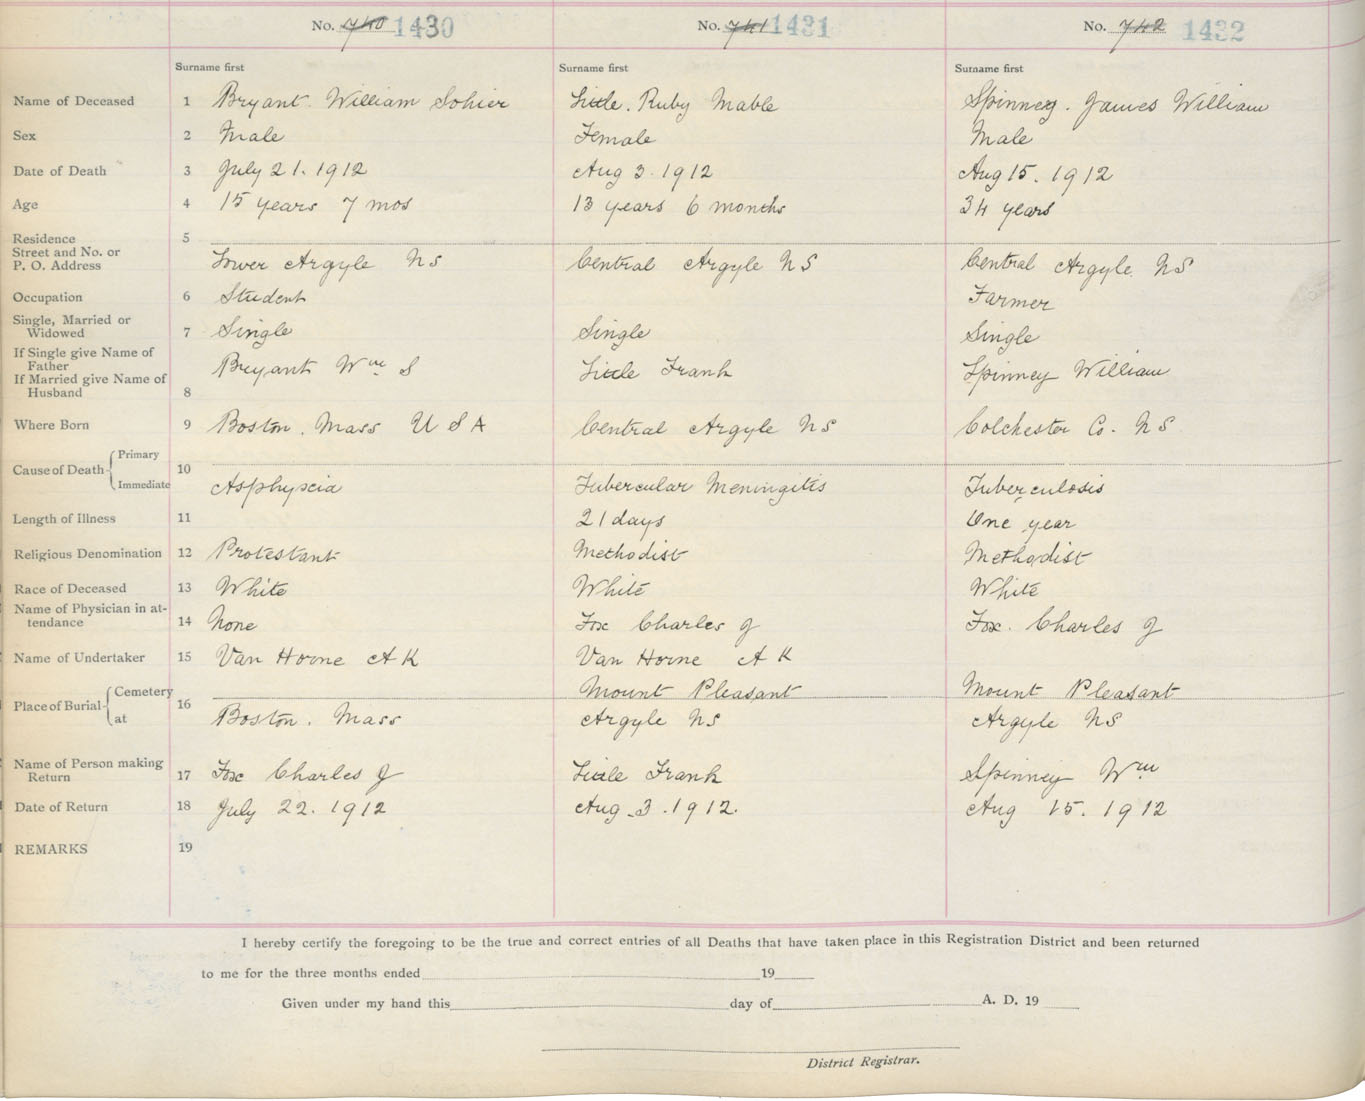 No. 740 1430 No. 741 1431 No. 742 1432
Surname first Surname first Surname first
Name of Deceased 1 Bryant. William Sohier Little. Ruby Mable Spinney. James William
Sex 2 Male Female Male
Date of Death 3 July 21. 1912 Aug 3. 1912 Aug 15. 1912
Age 4 15 years 7 mos 13 years 6 months 34 years
Residence 5
Street and No. or
P. O. Address Lower Argyle NS Central Argyle NS Central Argyle NS
Occupation 6 Student Farmer
Single, Married or
Widowed 7 Single Single Single
If Single give Name of
Father Bryant Wm S Little Frank Spinney William
If Married give Name of
Husband 8
Where Born 9 Boston. Mass U S A Central Argyle NS Colchester Co. NS
Cause of Death Primary 10
Immediate Asphyxia Tubercular Meningitis Tuberculosis
Length of Illness 11 21 days One year
Religious Denomination 12 Protestant Methodist Methodist
Race of Deceased 13 White White White
Name of Physician in at-
tendance 14 None Fox Charles J Fox. Charles J
Name of Undertaker 15 Van Horne A K Van Horne A K
Place of Burial Cemetery 16 Mount Pleasant Mount Pleasant
at Boston. Mass Argyle NS Argyle NS
Name of Person making
Return 17 Fox Charles J Little Frank Spinney Wm
Date of Return 18 July 22. 1912 Aug 3. 1912. Aug 15. 1912
REMARKS 19
I hereby certify the foregoing to be the true and correct entries of all Deaths that have taken place in this Registration District and been returned
to me for the three months ended 19
Given under my hand this day of A. D. 19
District Registrar.